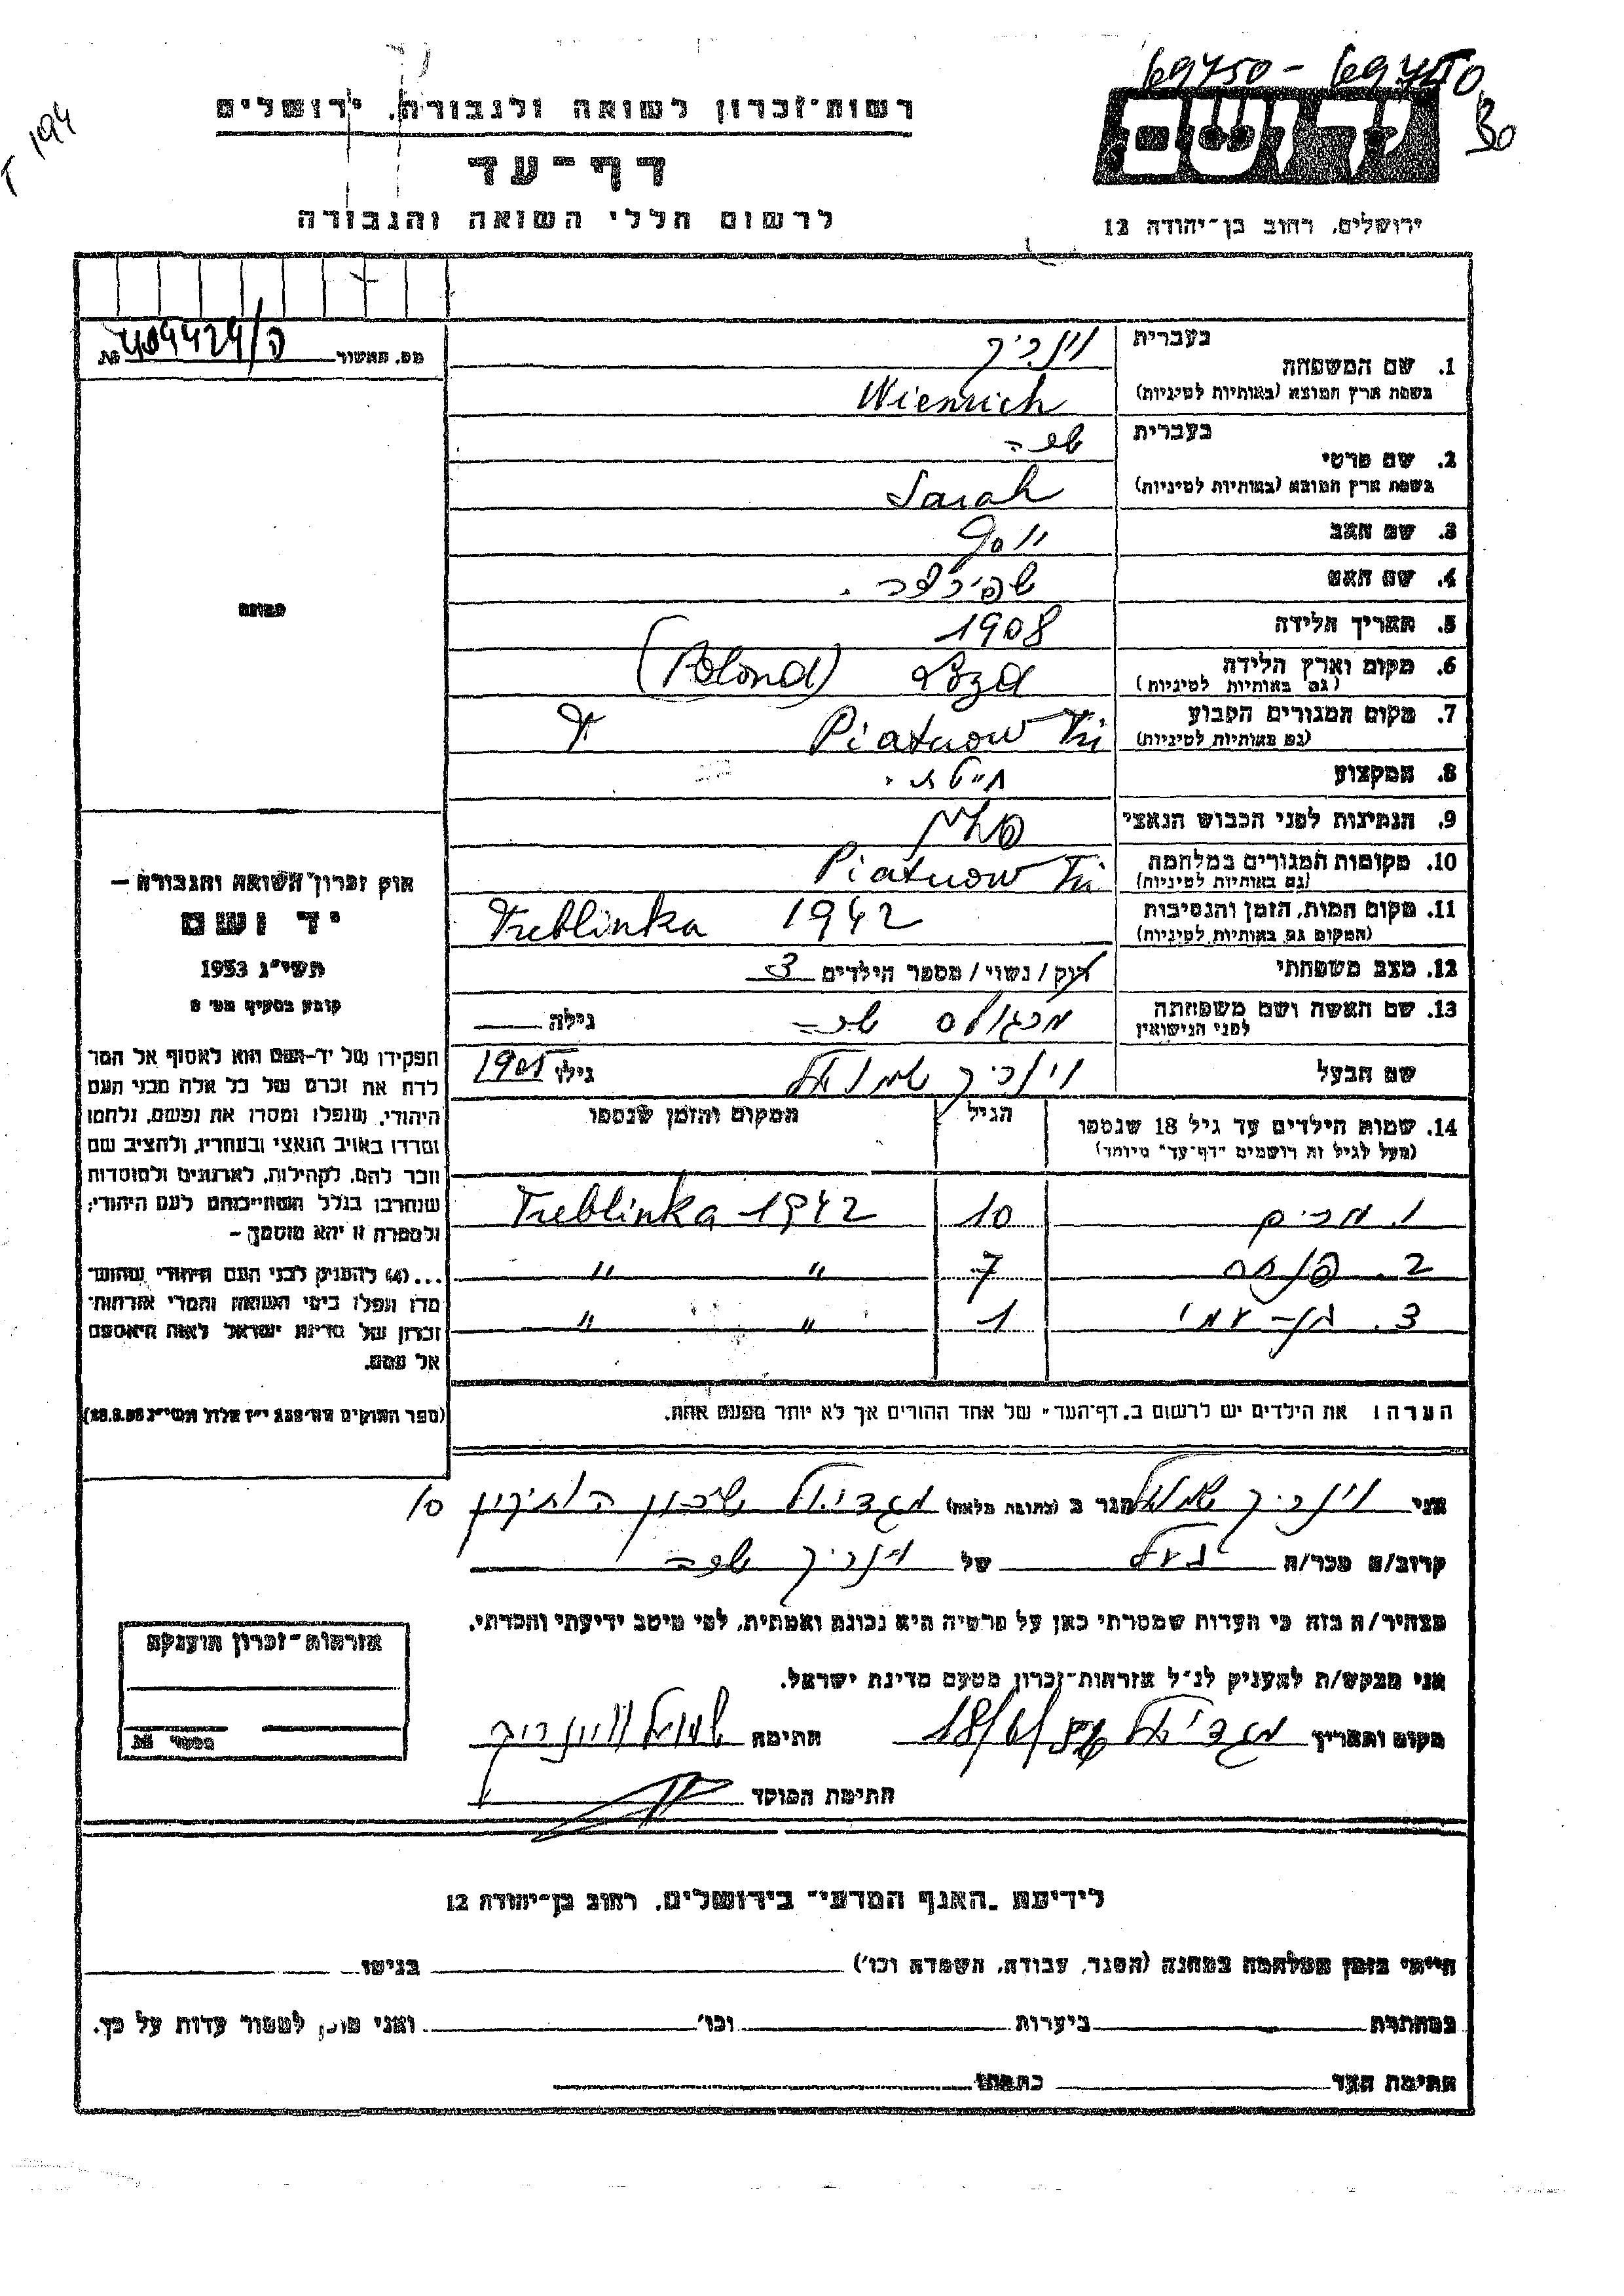 69750 - 69750
30
T 194
רשות־זכרון לשואה ולגבורה, ירושלים
דף־עד
לרשום חללי השואה והגבורה
יד ושם
ירושלים, רחוב בן־יהודה 12
מס. האשור 404424/ה №
1. שם המשפחה
בעברית וינריך
בשפת ארץ המוצא (באותיות לטיניות) Wienrich
2. שם פרטי
בעברית שרה
בשפת ארץ המוצא (באותיות לטיניות) Sarah
3. שם האב יוסף
4. שם האם
5. תאריך הלידה 1908
6. מקום וארץ הלידה
(גם באותיות לטיניות) Łozd (Polond)
7. מקום המגורים הקבוע
(גם באותיות לטיניות) Piatnow Tri
8. המקצוע
9. הנתינות לפני הכבוש הנאצי
10. מקומות המגורים במלחמה
(גם באותיות לטיניות) Piatnow Tri
11. מקום המות, הזמן והנסיבות
(המקום גם באותיות לטיניות) Treblinka 1942
12. מצב משפחתי רוק / נשוי / מספר הילדים 3
13. שם האשה ושם משפחתה
לפני הנישואין מרגולס שרה גילה
שם הבעל וינריך שמואל גילו 1905
14. שמות הילדים עד גיל 18 שנספו
(מעל לגיל זה רושמים "דף־עד" מיוחד)
הגיל
המקום והזמן שנספו
1. מרים 10 Treblinka 1942
2. פנחס 7 " "
3. בן-עמי 1 " "
הערה: את הילדים יש לרשום ב„דף־העד" של אחד ההורים אך לא יותר מפעם אחת.
תמונה
חוק זכרון השואה והגבורה —
יד ושם
תשי"ג 1953
קובע בסעיף מס' 2
תפקידו של יד־ושם הוא לאסוף אל המו־
לדת את זכרם של כל אלה מבני העם
היהודי, שנפלו ומסרו את נפשם, נלחמו
ומרדו באויב הנאצי ובעוזריו, ולהציב שם
וזכר להם, לקהילות, לארגונים ולמוסדות
שנחרבו בגלל השתייכותם לעם היהודי;
ולמטרה זו יהא מוסמך —
...(4) להעניק לבני העם היהודי שהוש־
מדו ונפלו בימי השואה והמרי אזרחות־
זכרון של מדינת ישראל לאות היאספם
אל עמם.
(ספר החוקים מס' 132 י"ז אלול תשי"ג 28.8.53)
אני וינריך שמואל הגר ב (כתובת מלאה) מגדיאל שיכון הותיקין 10
קרוב/ה מכר/ה בעל של וינריך שרה
מצהיר/ה בזה כי העדות שמסרתי כאן על פרטיה היא נכונה ואמתית, לפי מיטב ידיעתי והכרתי.
אני מבקש/ת להעניק לנ"ל אזרחות־זכרון מטעם מדינת ישראל.
מקום ותאריך מגדיאל 18/6/57 חתימה שמואל וינריך
חתימת הפוקד
אזרחות־זכרון הוענקה
מספר №
לידיעת „האגף המדעי" בירושלים, רחוב בן־יהודה 12
הייתי בזמן המלחמה במחנה (הסגר, עבודה, השמדה וכו') בגיטו
במחתרת ביערות וכו' ואני מוכן למסור עדות על כך.
חתימת העד כתבתו